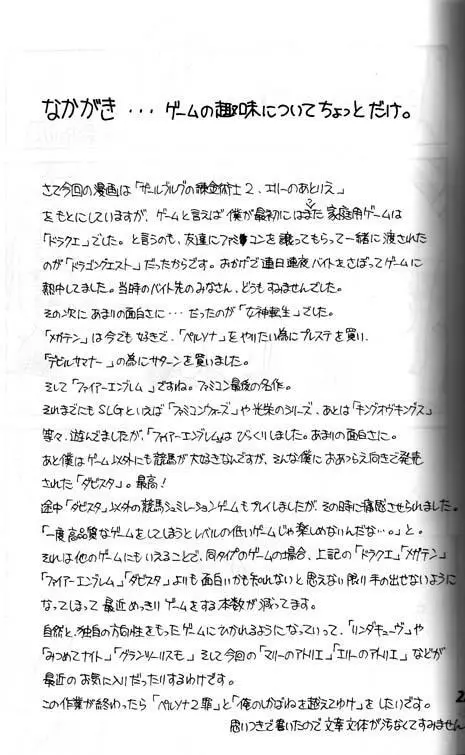 なかがき・・・ゲームの趣味についてちょっとだけ。
さて今回の漫画は「ザールブルグの錬金術士2、エリーのあとりえ」
をもとにしていますが、ゲームと言えば僕が最初にはまった家庭用ゲームは
「ドラクエ」でした。と言うのも、友達にファミコンを譲ってもらって一緒に渡された
のが「ドラゴンクエスト」だったからです。おかげで連日連夜バイトをさぼってゲームに
熱中してました。当時のバイト先のみなさん、どうもすみませんでした。
その次にあまりの面白さに・・・だったのが「女神転生」でした。
「メガテン」は今でも好きで、「ペルソナ」をやりたい為にプレステを買い、
「デビルサマナー」の為にサターンを買いました。
そして「ファイアーエンブレム」ですね。ファミコン最後の名作。
それまでにもSLGといえば「ファミコンウォーズ」や光栄のシリーズ、あとは「キングオブキングス」
等々、遊んでましたが、「ファイアーエンブレム」はびっくりしました。あまりの面白さに。
あと僕はゲーム以外にも競馬が大好きなんですが、そんな僕におあつらえ向きで発売
された「ダビスタ」。最高!
途中「ダビスタ」以外の競馬シュミレーションゲームもプレイしましたが、その時に痛感させられました。
「一度高品質なゲームをしてしまうとレベルの低いゲームじゃ楽しめないんだな…。」と。
それは他のゲームにもいえることで、同タイプのゲームの場合、上記の「ドラクエ」「メガテン」
「ファイアーエンブレム」「ダビスタ」よりも面白いかも知れないと思えない限り手の出せないように
なってしまって最近めっきりゲームをする本数が減ってます。
自然と、独自の方向性をもったゲームにひかれるようになっていって、「リンダキューヴ」や
「みつめてナイト」「グランツーリスモ」そして今回の「マリーのアトリエ」「エリーのアトリエ」などが
最近のお気に入りだったりするわけです。
この作業が終わったら「ペルソナ2罪」と「俺のしかばねを越えてゆけ」をしたいです。
思いつきで書いたので文章文体が汚なくてすみません
2